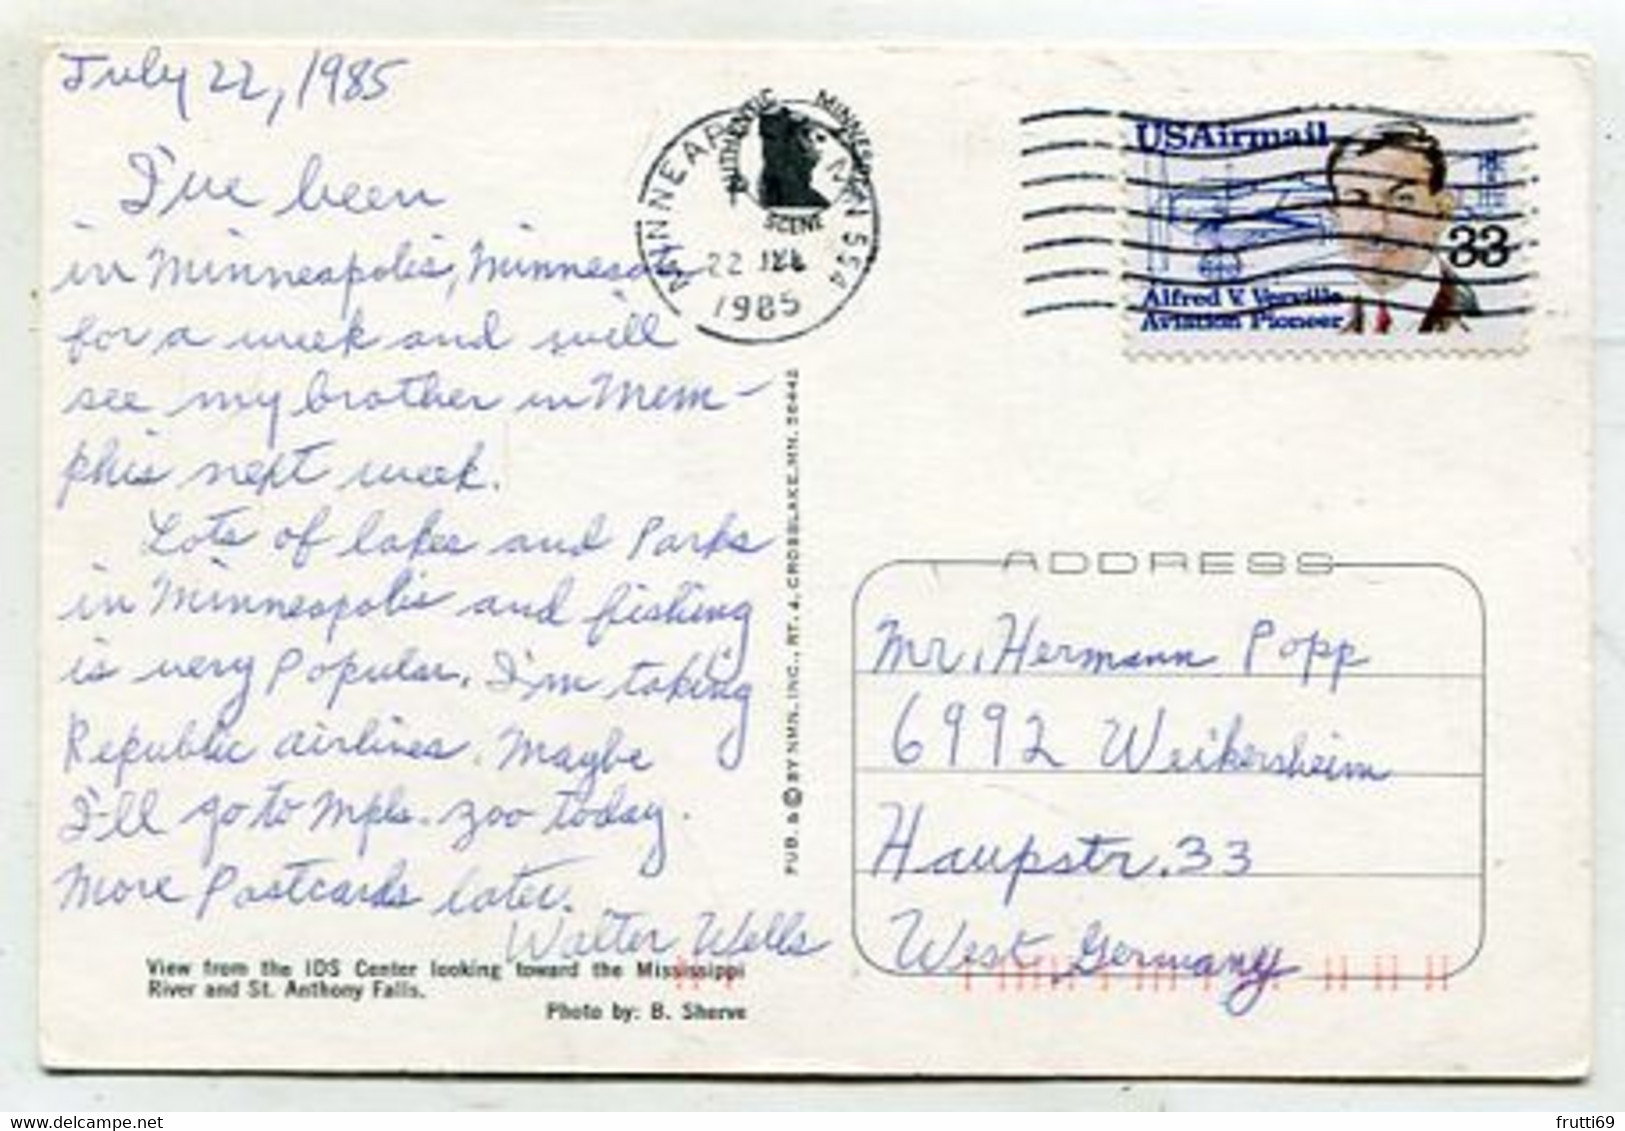 July 22, 1985
I've been
in Minneapolis, Minnesota
for a week and will
see my brother in Mem-
phis next week.
Lots of lakes and Parks
in Minneapolis and fishing
is very Popular. I'm taking
Republic airlines. Maybe
I'll go to Mpls. zoo today.
More Postcards later.
Walter Wells
View from the IDS Center looking toward the Mississippi
River and St. Anthony Falls.
Photo by: B. Sherve
PUB. & © BY NMN, INC., RT. 4, CROSSLAKE, MN. 56442
MINNEAPOLIS MN 554
22 JUL
1985
AUTHENTIC MINNESOTA
SCENE
USAirmail
33
Alfred V. Verville
Aviation Pioneer
ADDRESS
Mr. Hermann Popp
6992 Weikersheim
Haupstr. 33
West Germany
delcampe.net
frutti69